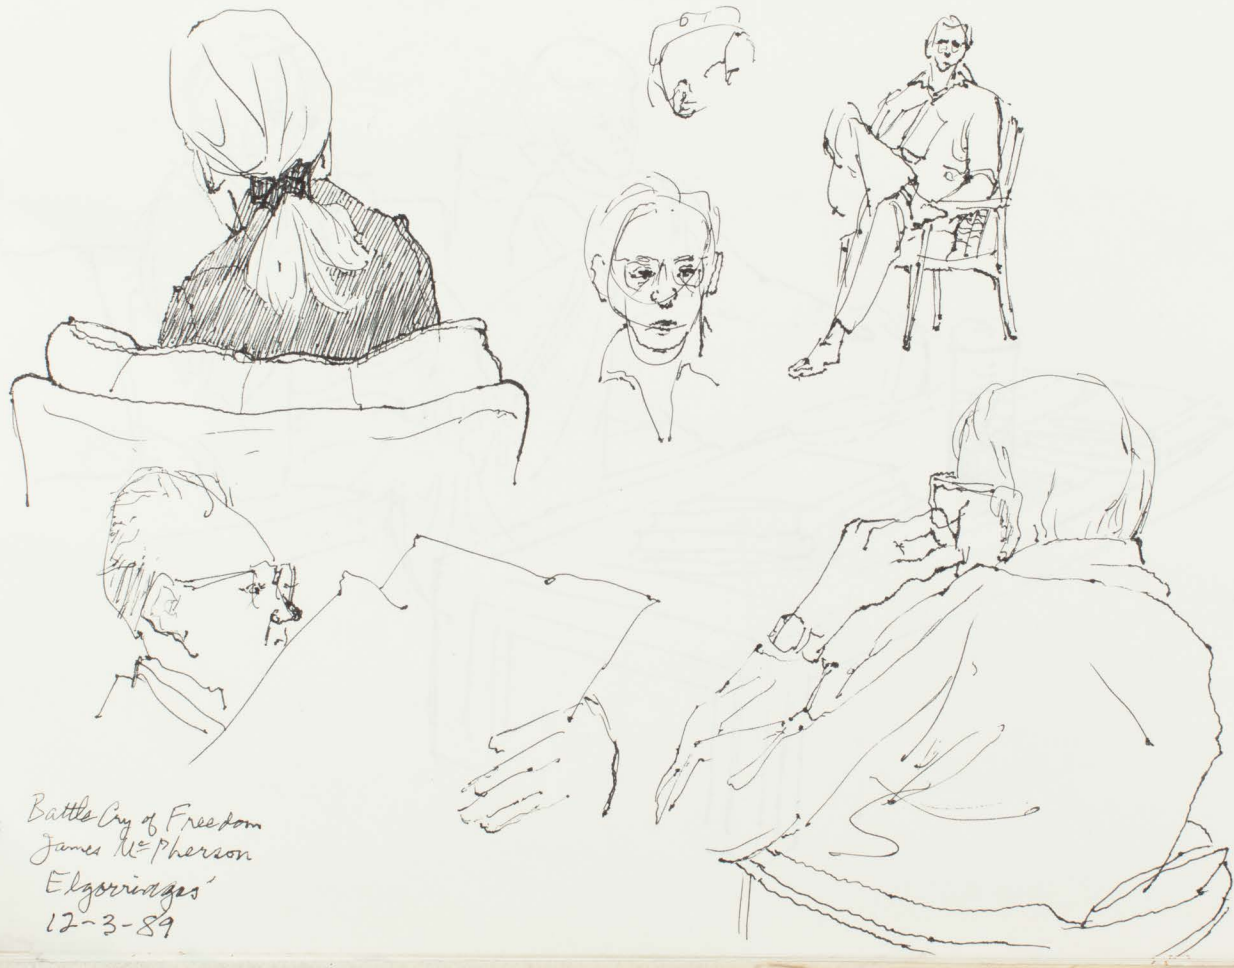 Battle Cry of Freedom
James McPherson
Elgorriagas'
12-3-89